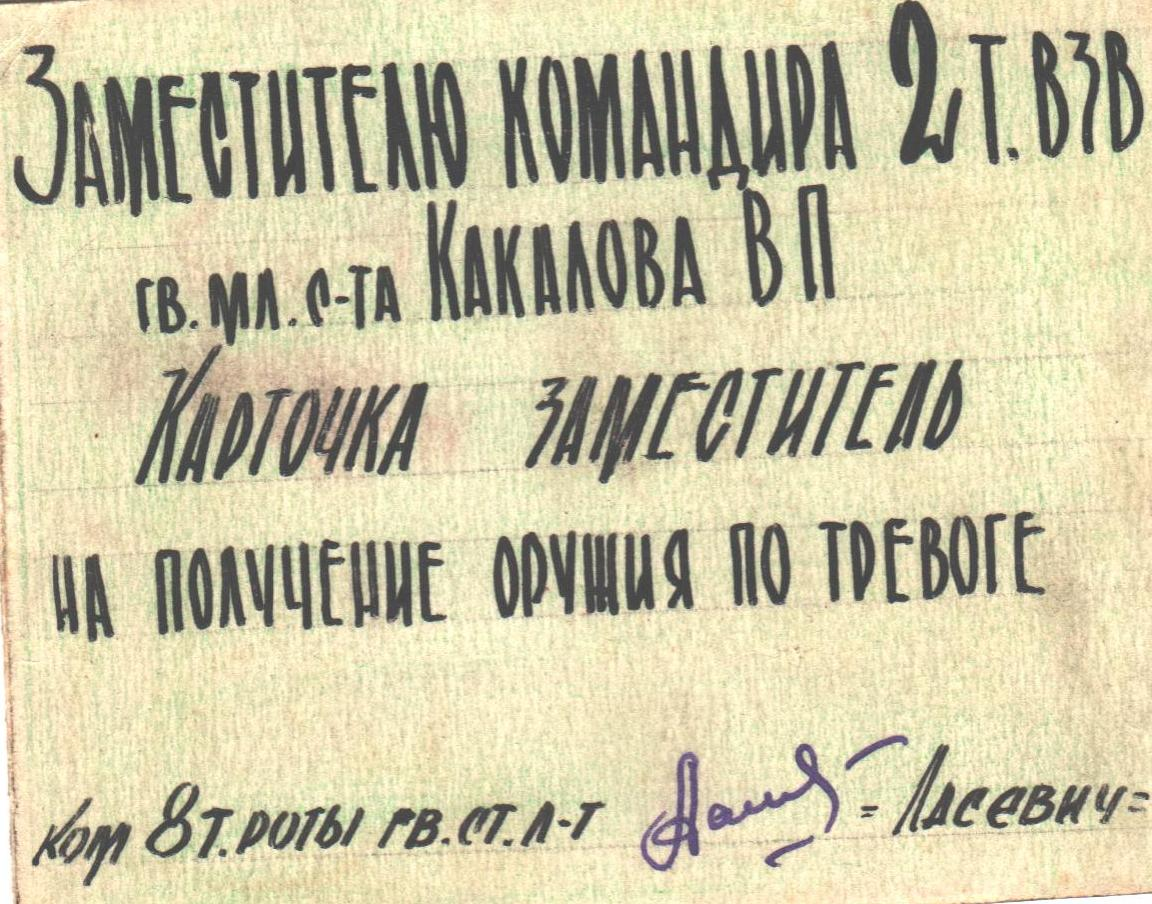 Заместителю командира 2 т. взв
гв. мл. с-та Какалова В П
Карточка заместитель
на получение оружия по тревоге
Ком 8 т. роты гв. ст. л-т = Ласевич =